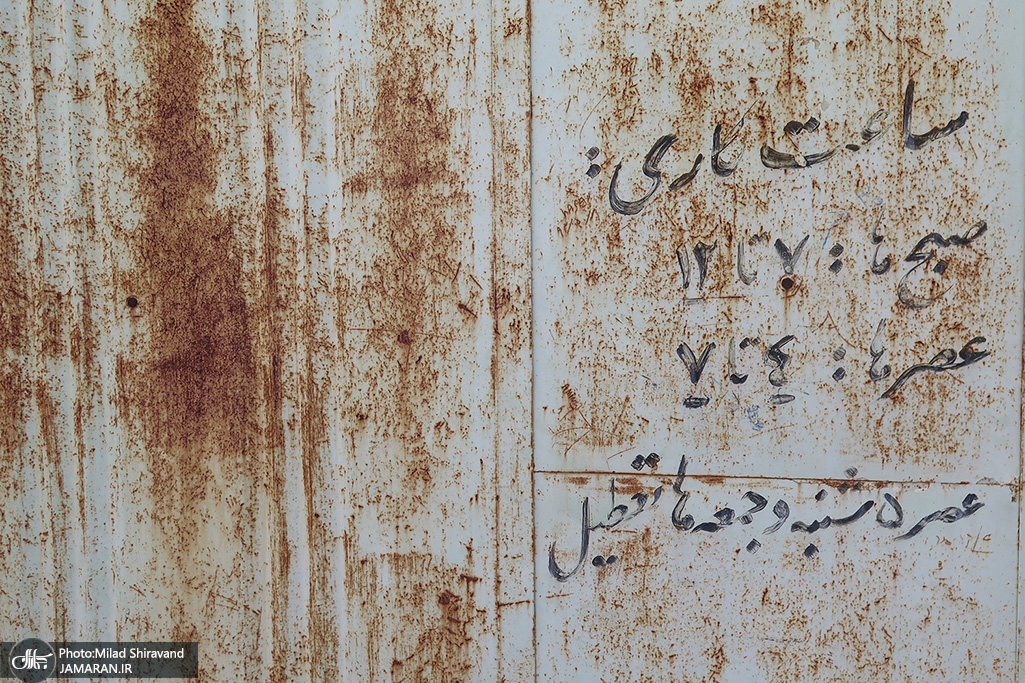 ساعت کاری :
صبح ها : ۷ تا ۱۲
عصر ها : ۴ تا ۷
عصر ۵ شنبه و جمعه ها تعطیل
Photo:Milad Shiravand
JAMARAN.IR